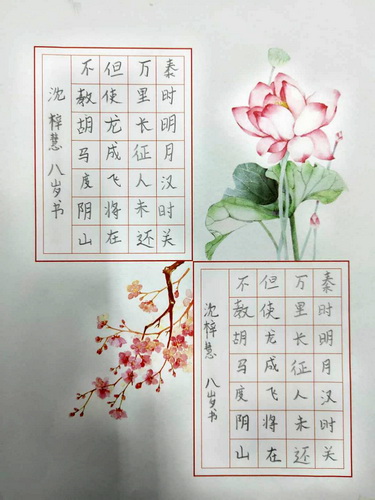 泰时明月汉时关
万里长征人未还
但使龙成飞将在
不教胡马度阴山
沈梓慧 八岁书
泰时明月汉时关
万里长征人未还
但使龙成飞将在
不教胡马度阴山
沈梓慧 八岁书